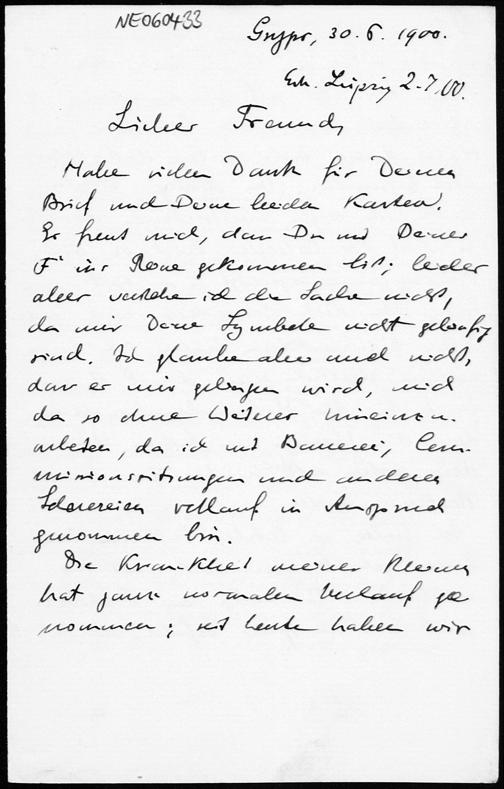 NE060433
Gryps, 30. 6. 1900.
Erh. Leipzig 2.7.00.
Lieber Freund,
Habe vielen Dank für Deinen
Brief und Deine beiden Karten.
Es freut mich, dass Du mit Deiner
F ins Reine gekommen bist; leider
aber verstehe ich die Sache nicht,
da mir Deine Symbole nicht geläufig
sind. Ich glaube aber auch nicht,
dass es mir gelingen wird, mich
da so ohne Weiteres hineinzu-
arbeiten, da ich mit Bauerei, Com-
missionssitzungen und anderen
Scherereien vollauf in Anspruch
genommen bin.
Die Krankheit meiner Kleinen
hat ganz normalen Verlauf ge
nommen; seit heute haben wir